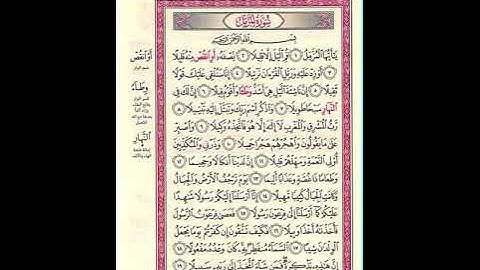 سورة المزمل
بسم الله الرحمن الرحيم
يأيها المزمل ١ قم اليل إلا قليلا ٢ نصفه أو انقص منه قليلا
٣ أو زد عليه ورتل القرءان ترتيلا ٤ إنا سنلقي عليك قولا
ثقيلا ٥ إن ناشئة اليل هي أشد وطاء وأقوم قيلا ٦ إن لك في
النهار سبحا طويلا ٧ واذكر اسم ربك وتبتل إليه تبتيلا ٨
رب المشرق والمغرب لا إله إلا هو فاتخذه وكيلا ٩ واصبر
على ما يقولون واهجرهم هجرا جميلا ١٠ وذرني والمكذبين
أولي النعمة ومهلهم قليلا ١١ إن لدينا أنكالا وجحيما ١٢
وطعاما ذا غصة وعذابا أليما ١٣ يوم ترجف الأرض والجبال
وكانت الجبال كثيبا مهيلا ١٤ إنا أرسلنا إليكم رسولا شهدا
عليكم كما أرسلنا إلى فرعون رسولا ١٥ فعصى فرعون الرسول
فأخذنه أخذا وبيلا ١٦ فكيف تتقون إن كفرتم يوما يجعل
الولدن شيبا ١٧ السماء منفطر به كان وعده مفعولا ١٨
إن هذه تذكرة فمن شاء اتخذ إلى ربه سبيلا ١٩
أو انقص
بضم الواو
وطاء
النهار